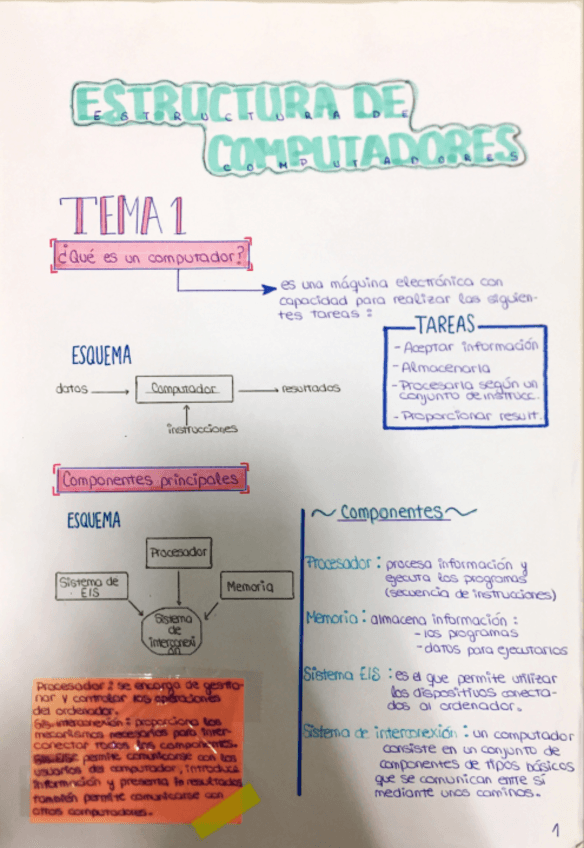 ESTRUCTURA DE
COMPUTADORES
TEMA 1
¿Qué es un computador?
es una máquina electrónica con
capacidad para realizar las siguien-
tes tareas:
TAREAS
- Aceptar información
- Almacenarla
- Procesarla según un
conjunto de instrucc.
- Proporcionar result.
ESQUEMA
datos
Computador
resultados
instrucciones
Componentes principales
ESQUEMA
Procesador
Sistema de
E/S
Memoria
Sistema
de
interconexi
ón
~ Componentes ~
Procesador: procesa información y
ejecuta los programas
(secuencia de instrucciones)
Memoria: almacena información:
- los programas
- datos para ejecutarlos
Sistema E/S: es el que permite utilizar
los dispositivos conecta-
dos al ordenador.
Sistema de interconexión: un computador
consiste en un conjunto de
componentes de tipos básicos
que se comunican entre sí
mediante unos caminos.
Procesador: se encarga de gestio-
nar y controlar las operaciones
del ordenador.
Sis. interconexión: proporciona los
mecanismos necesarios para inter-
conectar todos los componentes.
Sis. E/S: permite comunicarse con los
usuarios del computador, introducir
información y presenta los resultados
también permite comunicarse con
otros computadores.
1